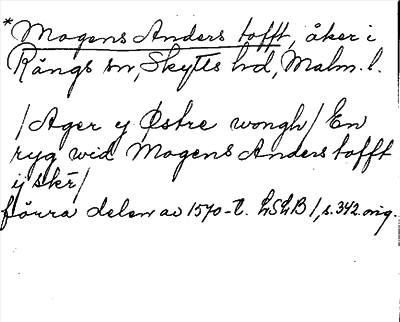 *Mogens Anders tofft, åker i
Rängs sn, Skytts hd, Malm. l.
/Ager y Østre wongh/ En
ryg wid Mogens Anders tofft
ij skr̄/
förra delen av 1570-t. LSLB 1, s. 342. orig.